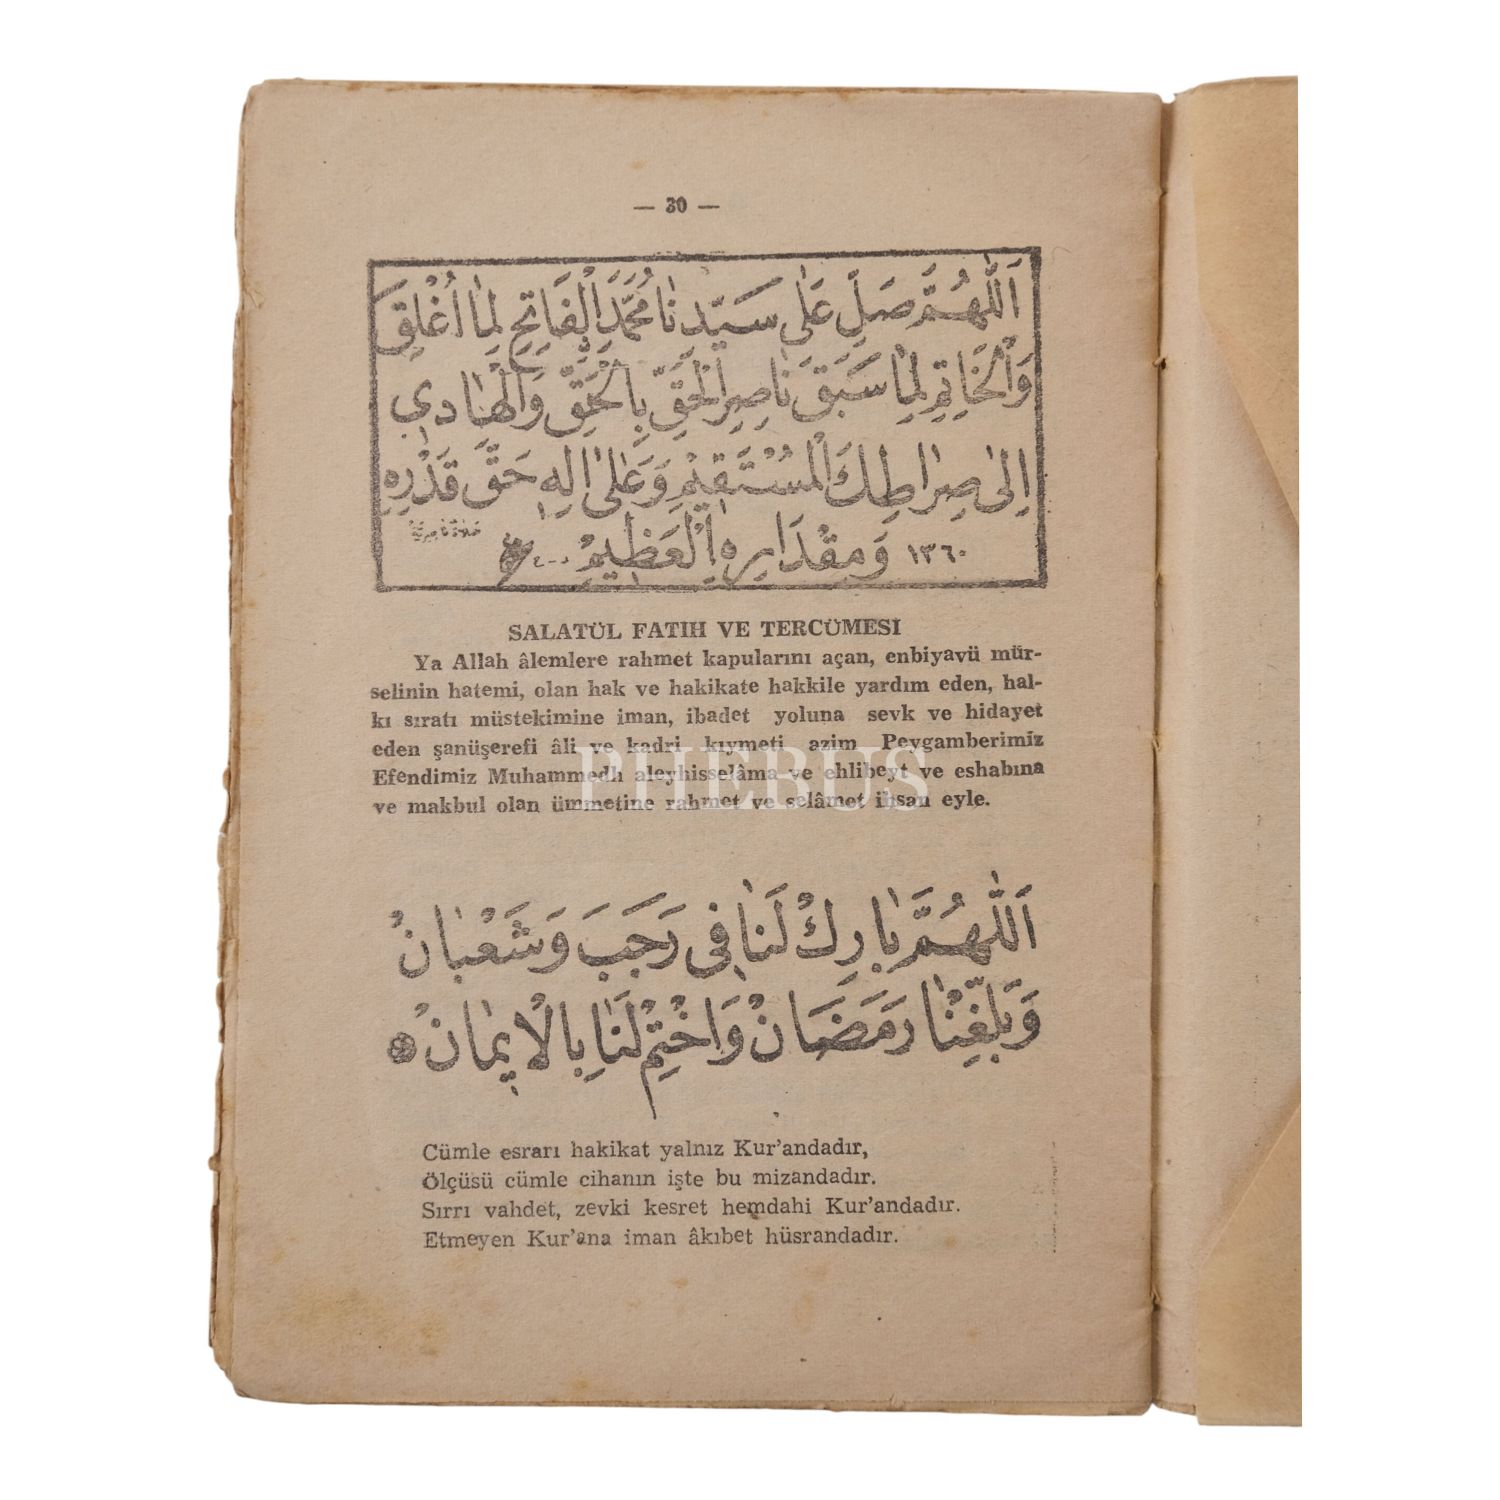 — 30 —
اَللّٰهُمَّ صَلِّ عَلٰى سَيِّدِنَا مُحَمَّدٍ الْفَاتِحِ لِمَا اُغْلِقَ
وَالْخَاتِمِ لِمَا سَبَقَ نَاصِرِ الْحَقِّ بِالْحَقِّ وَالْهَادِي
اِلٰى صِرَاطِكَ الْمُسْتَقِيمِ وَعَلٰى اٰلِهِ حَقَّ قَدْرِهِ
١٣٦٠ وَمِقْدَارِهِ الْعَظِيمِ
SALATÜL FATIH VE TERCÜMESİ
Ya Allah âlemlere rahmet kapularını açan, enbiyavü mür-
selinin hatemi, olan hak ve hakikate hakkile yardım eden, hal-
kı sıratı müstekimine iman, ibadet yoluna sevk ve hidayet
eden şanüşerefi âli ve kadri kıymeti azim Peygamberimiz
Efendimiz Muhammedh aleyhisselâma ve ehlibeyt ve eshabına
ve makbul olan ümmetine rahmet ve selâmet ihsan eyle.
PHEBUS
اَللّٰهُمَّ بَارِكْ لَنَا فِى رَجَبَ وَشَعْبَانْ
وَبَلِّغْنَا رَمَضَانْ وَاخْتِمْ لَنَا بِالْاِيمَانْ
Cümle esrarı hakikat yalnız Kur'andadır,
Ölçüsü cümle cihanın işte bu mizandadır.
Sırrı vahdet, zevki kesret hemdahi Kur'andadır.
Etmeyen Kur'ana iman âkıbet hüsrandadır.